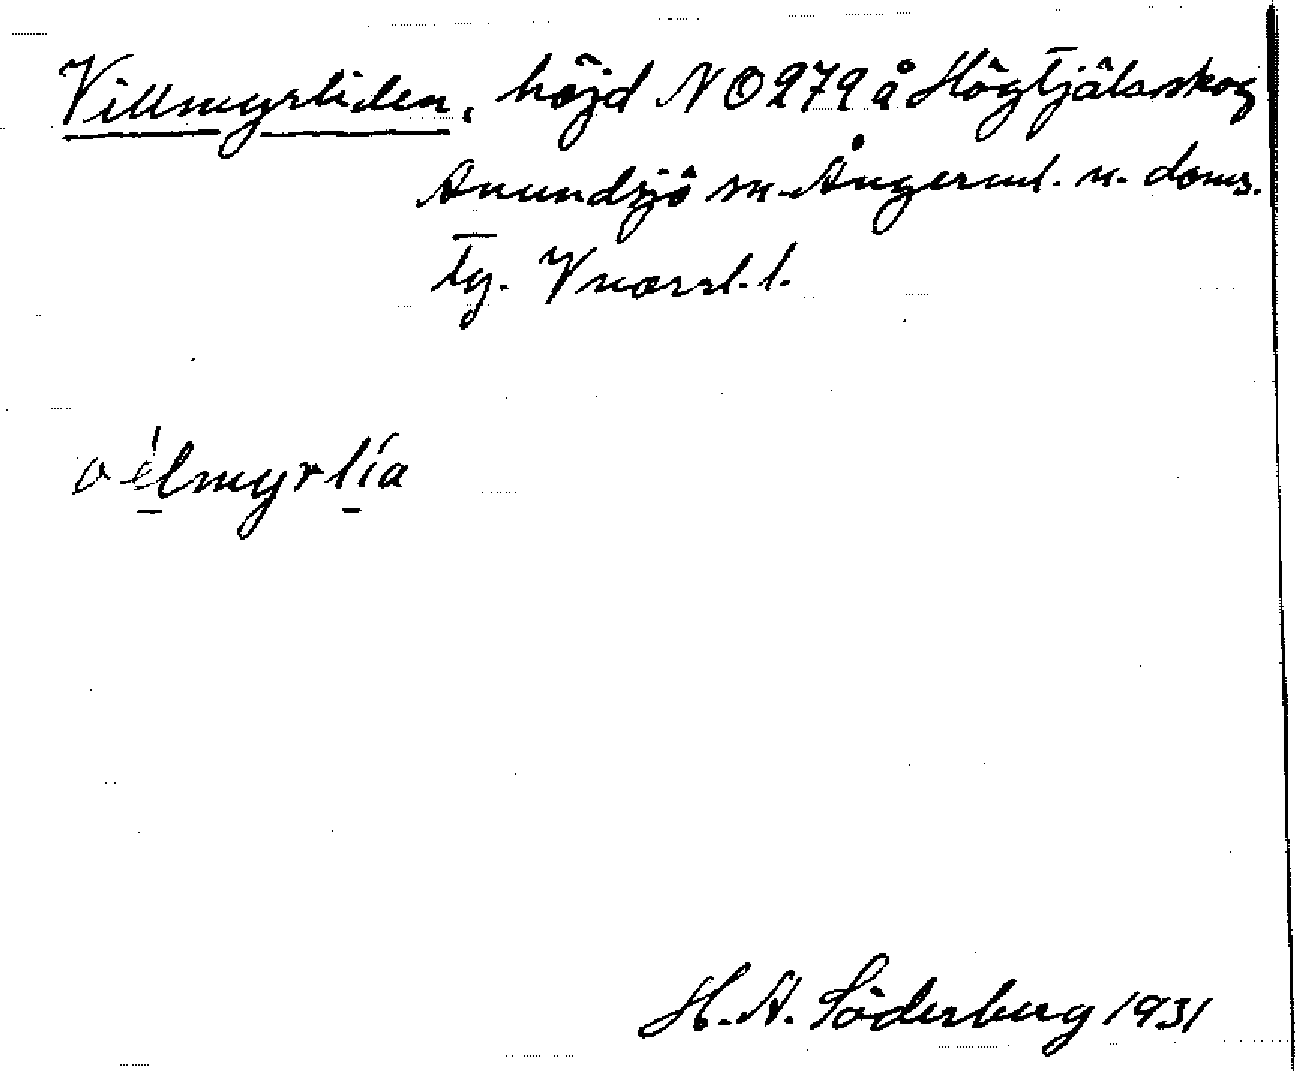 Villmyrliden, höjd NO 279 å Högtjälsskog
Anundsjö sn. Ångerml. n. doms.
Tg. Vnorrl. l.
vélmyrlía
H. A. Söderberg 1931